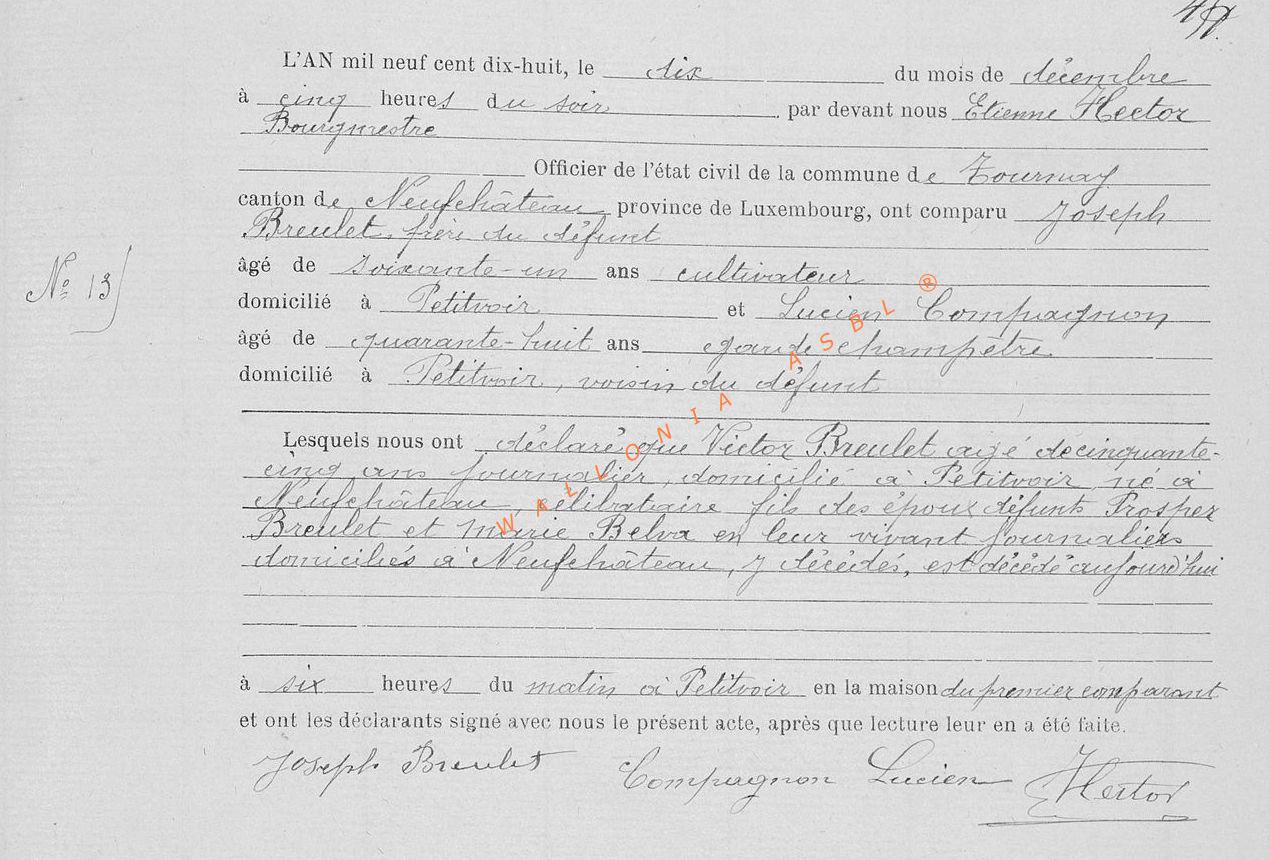 L'AN mil neuf cent dix-huit, le dix du mois de décembre
à cinq heures du soir par devant nous Etienne Hector
Bourgmestre
Officier de l'état civil de la commune de Tournay
canton de Neufchâteau province de Luxembourg, ont comparu Joseph
Breulet, frère du défunt
âgé de soixante-un ans cultivateur
N° 13
domicilié à Petitvoir et Lucien Compagnon
âgé de quarante-huit ans garde champêtre
domicilié à Petitvoir, voisin du défunt
Lesquels nous ont déclaré que Victor Breulet agé de cinquante-
cinq ans journalier, domicilié à Petitvoir né à
Neufchâteau, célibataire fils des époux défunts Prosper
Breulet et Marie Belva en leur vivant journaliers
domiciliés à Neufchâteau, y décédés, est décédé aujourd'hui
à six heures du matin à Petitvoir en la maison du premier comparant
et ont les déclarants signé avec nous le présent acte, après que lecture leur en a été faite.
Joseph Breulet Compagnon Lucien Hector
WALLONIA ASBL ®